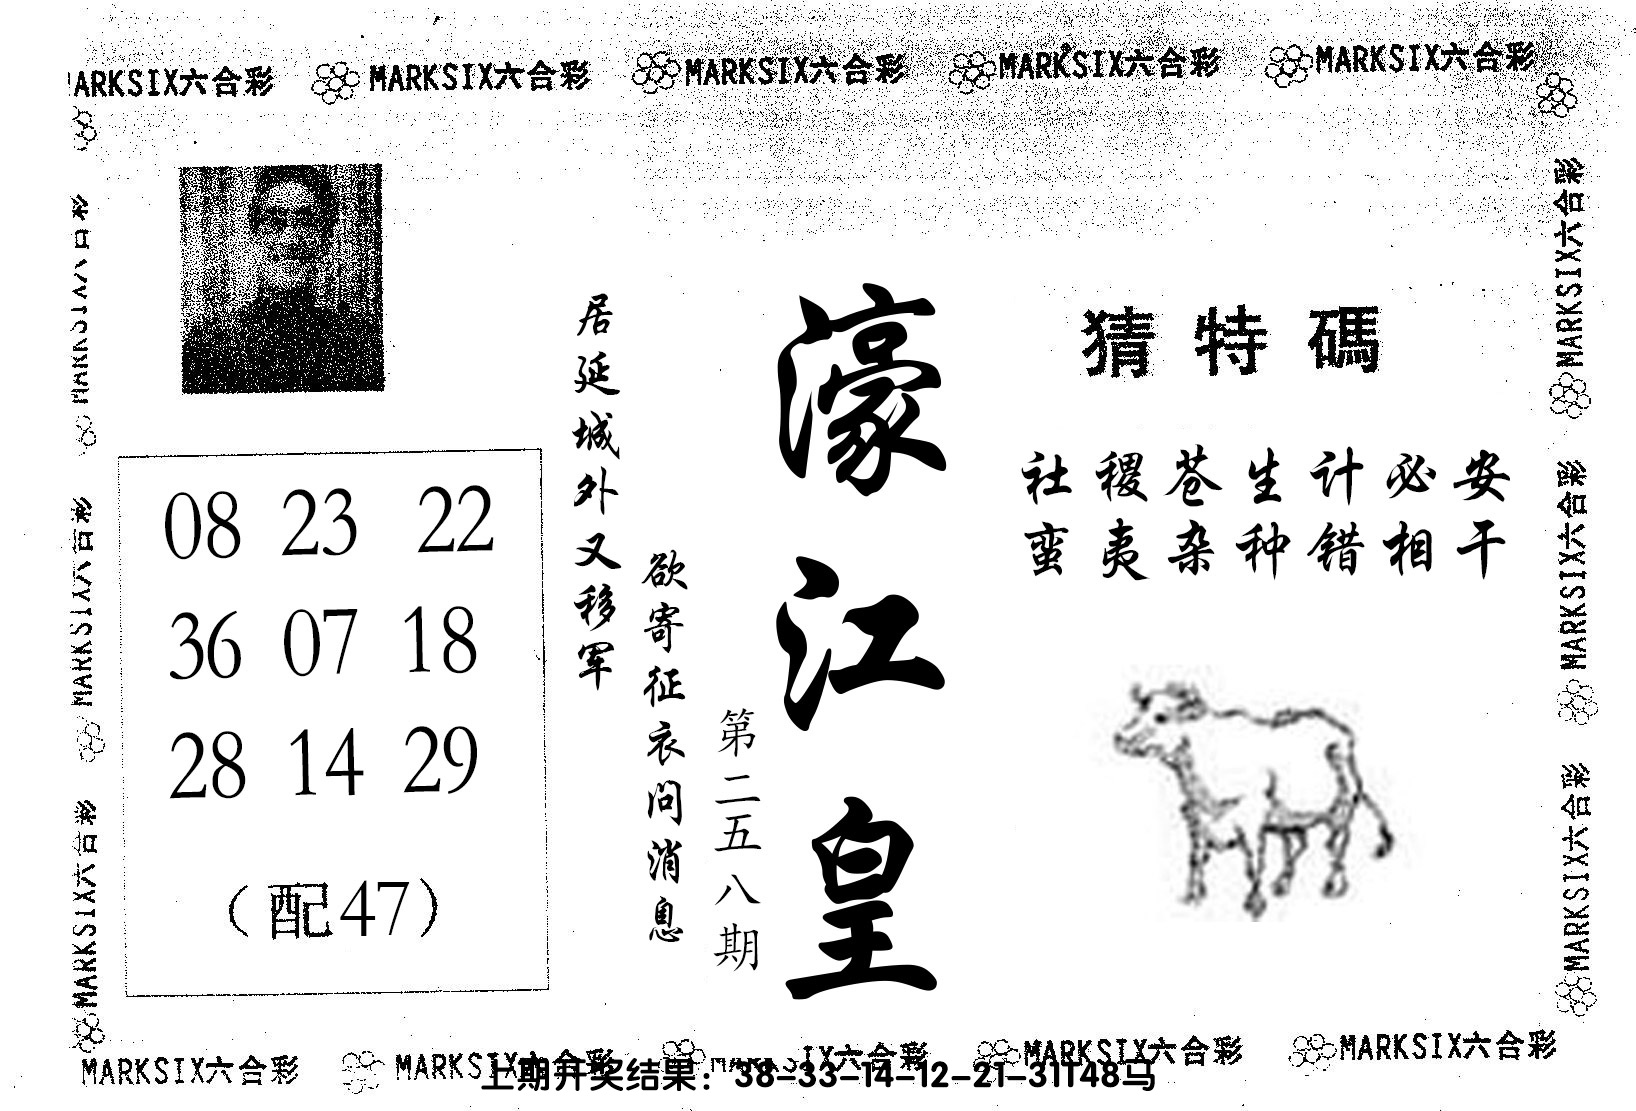 MARKSIX六合彩 MARKSIX六合彩 MARKSIX六合彩 MARKSIX六合彩 MARKSIX六合彩
猜特碼
社稷苍生计必安
蛮夷杂种错相干
濠江皇
第二五八期
居延城外又移军
欲寄征衣问消息
08 23 22
36 07 18
28 14 29
（配47）
MARKSIX六合彩
MARKSIX六合彩
MARKSIX六合彩
MARKSIX六合彩
MARKSIX六合彩
MARKSIX六合彩
MARKSIX六合彩 MARKSIX六合彩 MARKSIX六合彩 MARKSIX六合彩 MARKSIX六合彩
上期开奖结果：38-33-14-12-21-31T48马